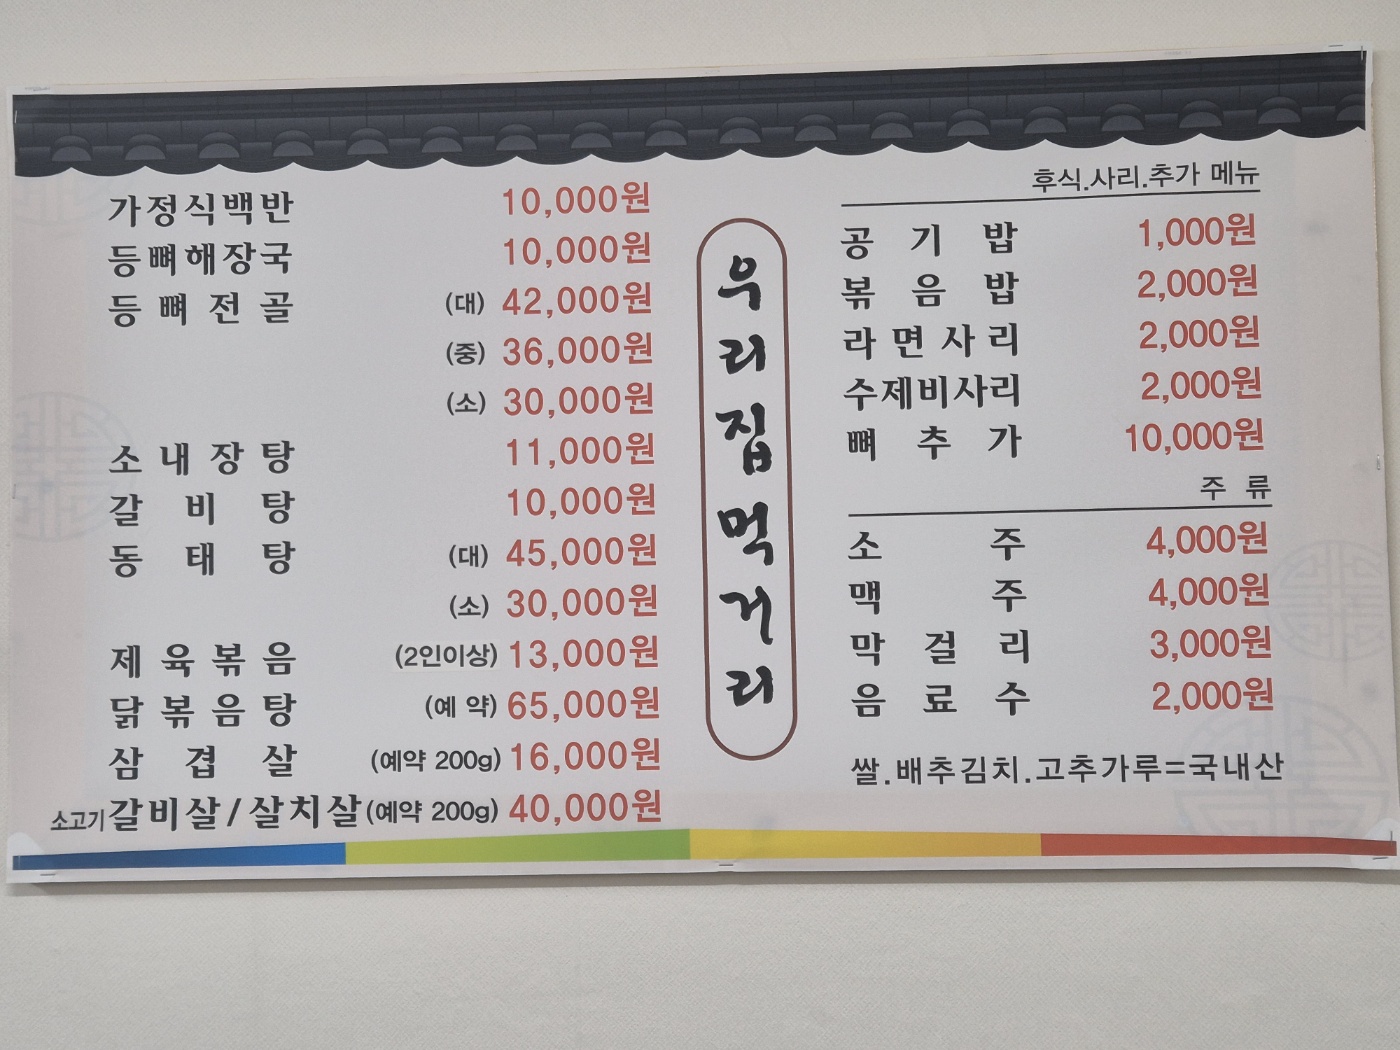 가정식백반 10,000원
등뼈해장국 10,000원
등뼈전골 (대) 42,000원
(중) 36,000원
(소) 30,000원
소내장탕 11,000원
갈비탕 10,000원
동태탕 (대) 45,000원
(소) 30,000원
제육볶음 (2인이상) 13,000원
닭볶음탕 (예약) 65,000원
삼겹살 (예약 200g) 16,000원
소고기 갈비살/살치살 (예약 200g) 40,000원
우리집먹거리
후식.사리.추가 메뉴
공기밥 1,000원
볶음밥 2,000원
라면사리 2,000원
수제비사리 2,000원
뼈추가 10,000원
주류
소주 4,000원
맥주 4,000원
막걸리 3,000원
음료수 2,000원
쌀.배추김치.고추가루=국내산